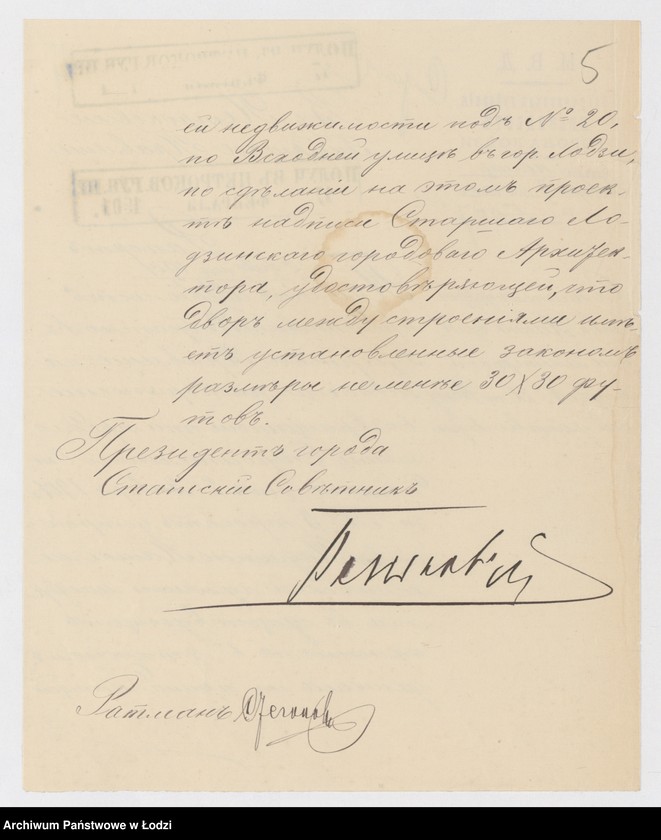 5
ей недвижимости подъ № 20,
по Всходней улицѣ въ гор. Лодзи,
по сдѣланіи на этомъ проек-
тѣ надписи Старшаго Ло-
дзинскаго городоваго Архитек-
тора, удостовѣряющей, что
дворъ между строеніями имѣ-
етъ установленные закономъ
размѣры не менѣе 30 X 30 фу-
товъ.
Президентъ города
Статскій Совѣтникъ
Ратманъ
Archiwum Państwowe w Łodzi